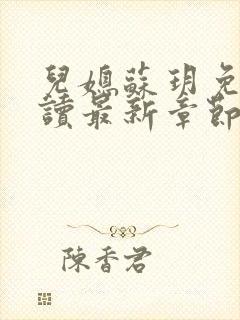 兒媳蘇玥免
讀最新章節
陳香君